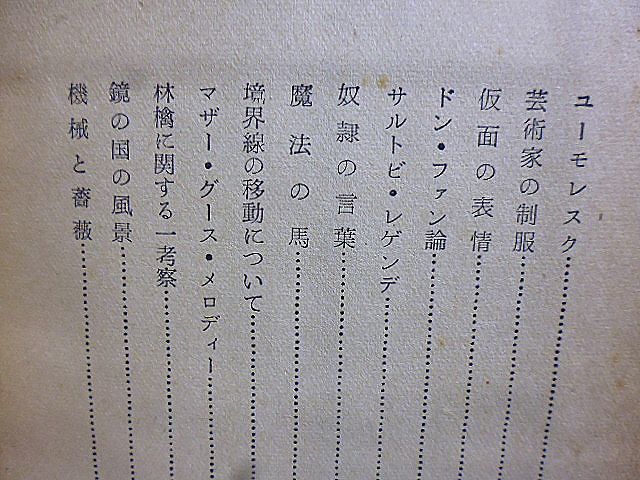 ユーモレスク
芸術家の制服
仮面の表情
ドン・ファン論
サルトビ・レゲンデ
奴隷の言葉
魔法の馬
境界線の移動について
マザー・グース・メロディー
林檎に関する一考察
鏡の国の風景
機械と薔薇